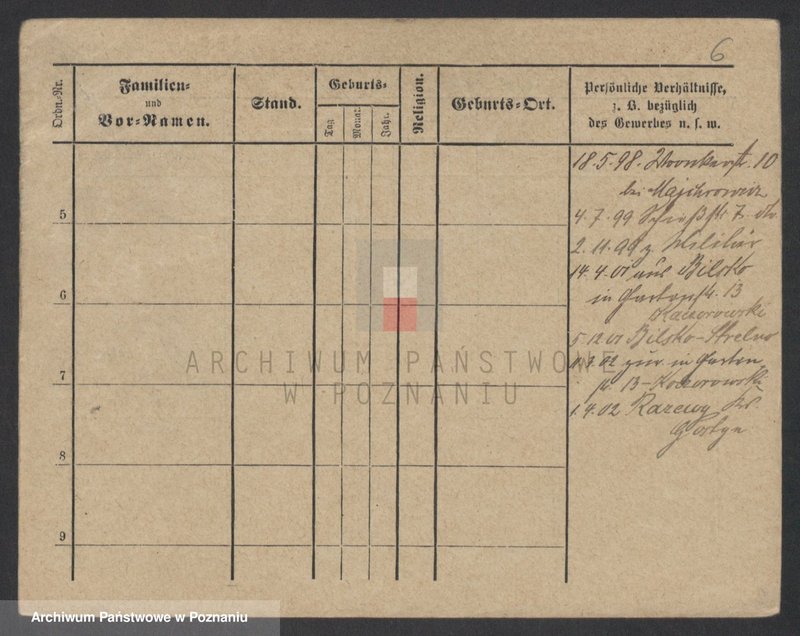 6
Ordn.-Nr.
Familien-
und
Vor-Namen.
Stand.
Geburts-
Tag
Monat
Jahr.
Religion.
Geburts-Ort.
Persönliche Verhältnisse,
z. B. bezüglich
des Gewerbes u. s. w.
18.5.98. 10
bei Majchrowicz
4.7.99 Schießstr 7.
2.11.99 z. Militär
14.4.01 aus Bilsko
in Gartenstr. 13
Kaczorowski
5.12.01 Bilsko-Strelno
02 zur. in Garten
str. 13-Kaczorowski
1.4.02 Razewy Kr.
Gostyn
5
6
7
8
9
ARCHIWUM PAŃSTWOWE
W POZNANIU
Archiwum Państwowe w Poznaniu